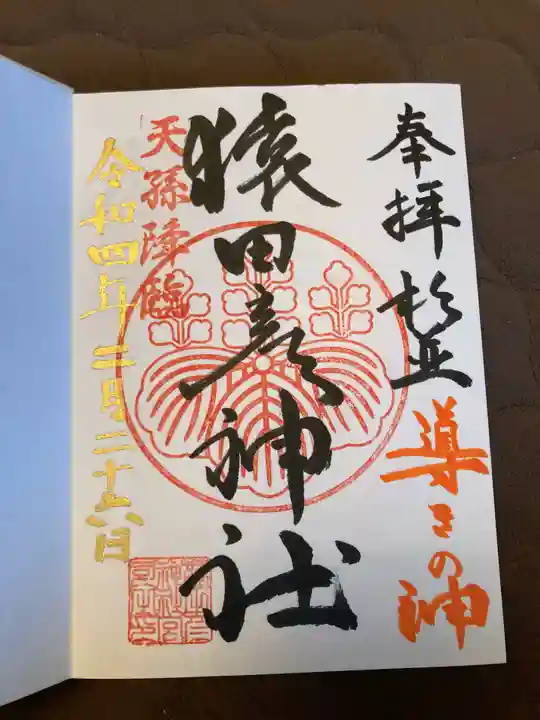 奉拝 杉並
導きの神
猿田彦神社
天孫降臨
令和四年二月二十六日